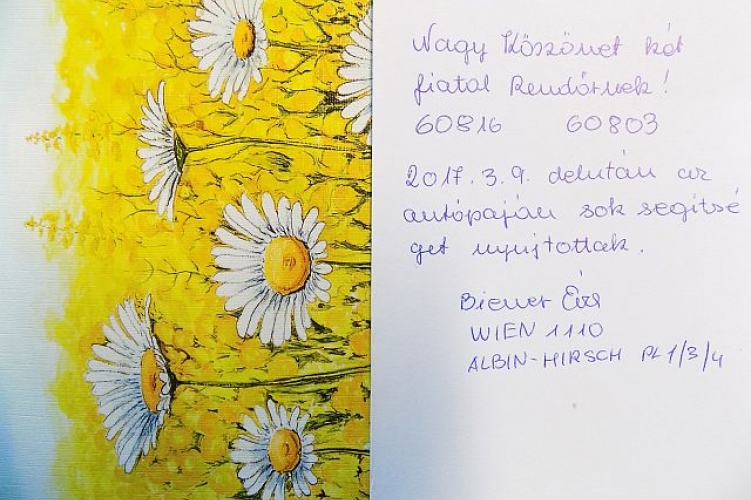 Nagy Köszönet két
fiatal Rendőrnek!
60816 60803
2017.3.9. delután az
autópaján sok segítsé
get nyujtottak.
Biewer Éva
WIEN 1110
ALBIN-HIRSCH PL 1/3/4